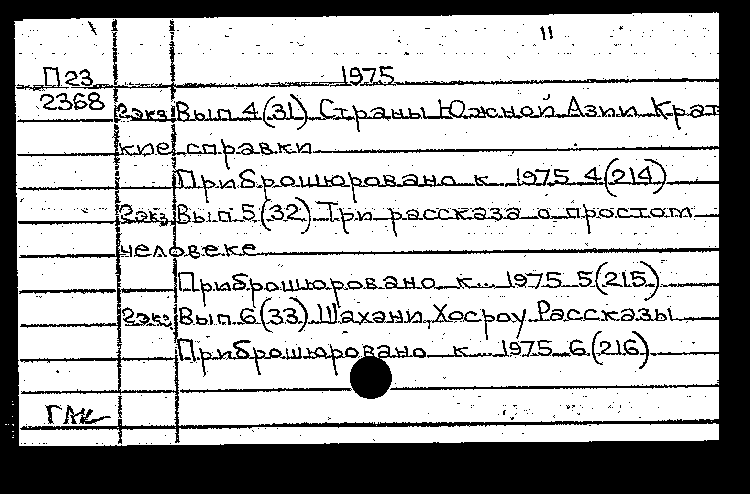 11
П23 1975
2368 2экз. Вып 4(31) Страны Южной Азии Крат
кие справки
Приброшюровано к 1975 4(214)
2экз. Вып 5(32) Три рассказа о простом
человеке
Приброшюровано к... 1975 5(215)
2экз. Вып 6(33) Шахани, Хосроу Рассказы
Приброшюровано к... 1975 6(216)